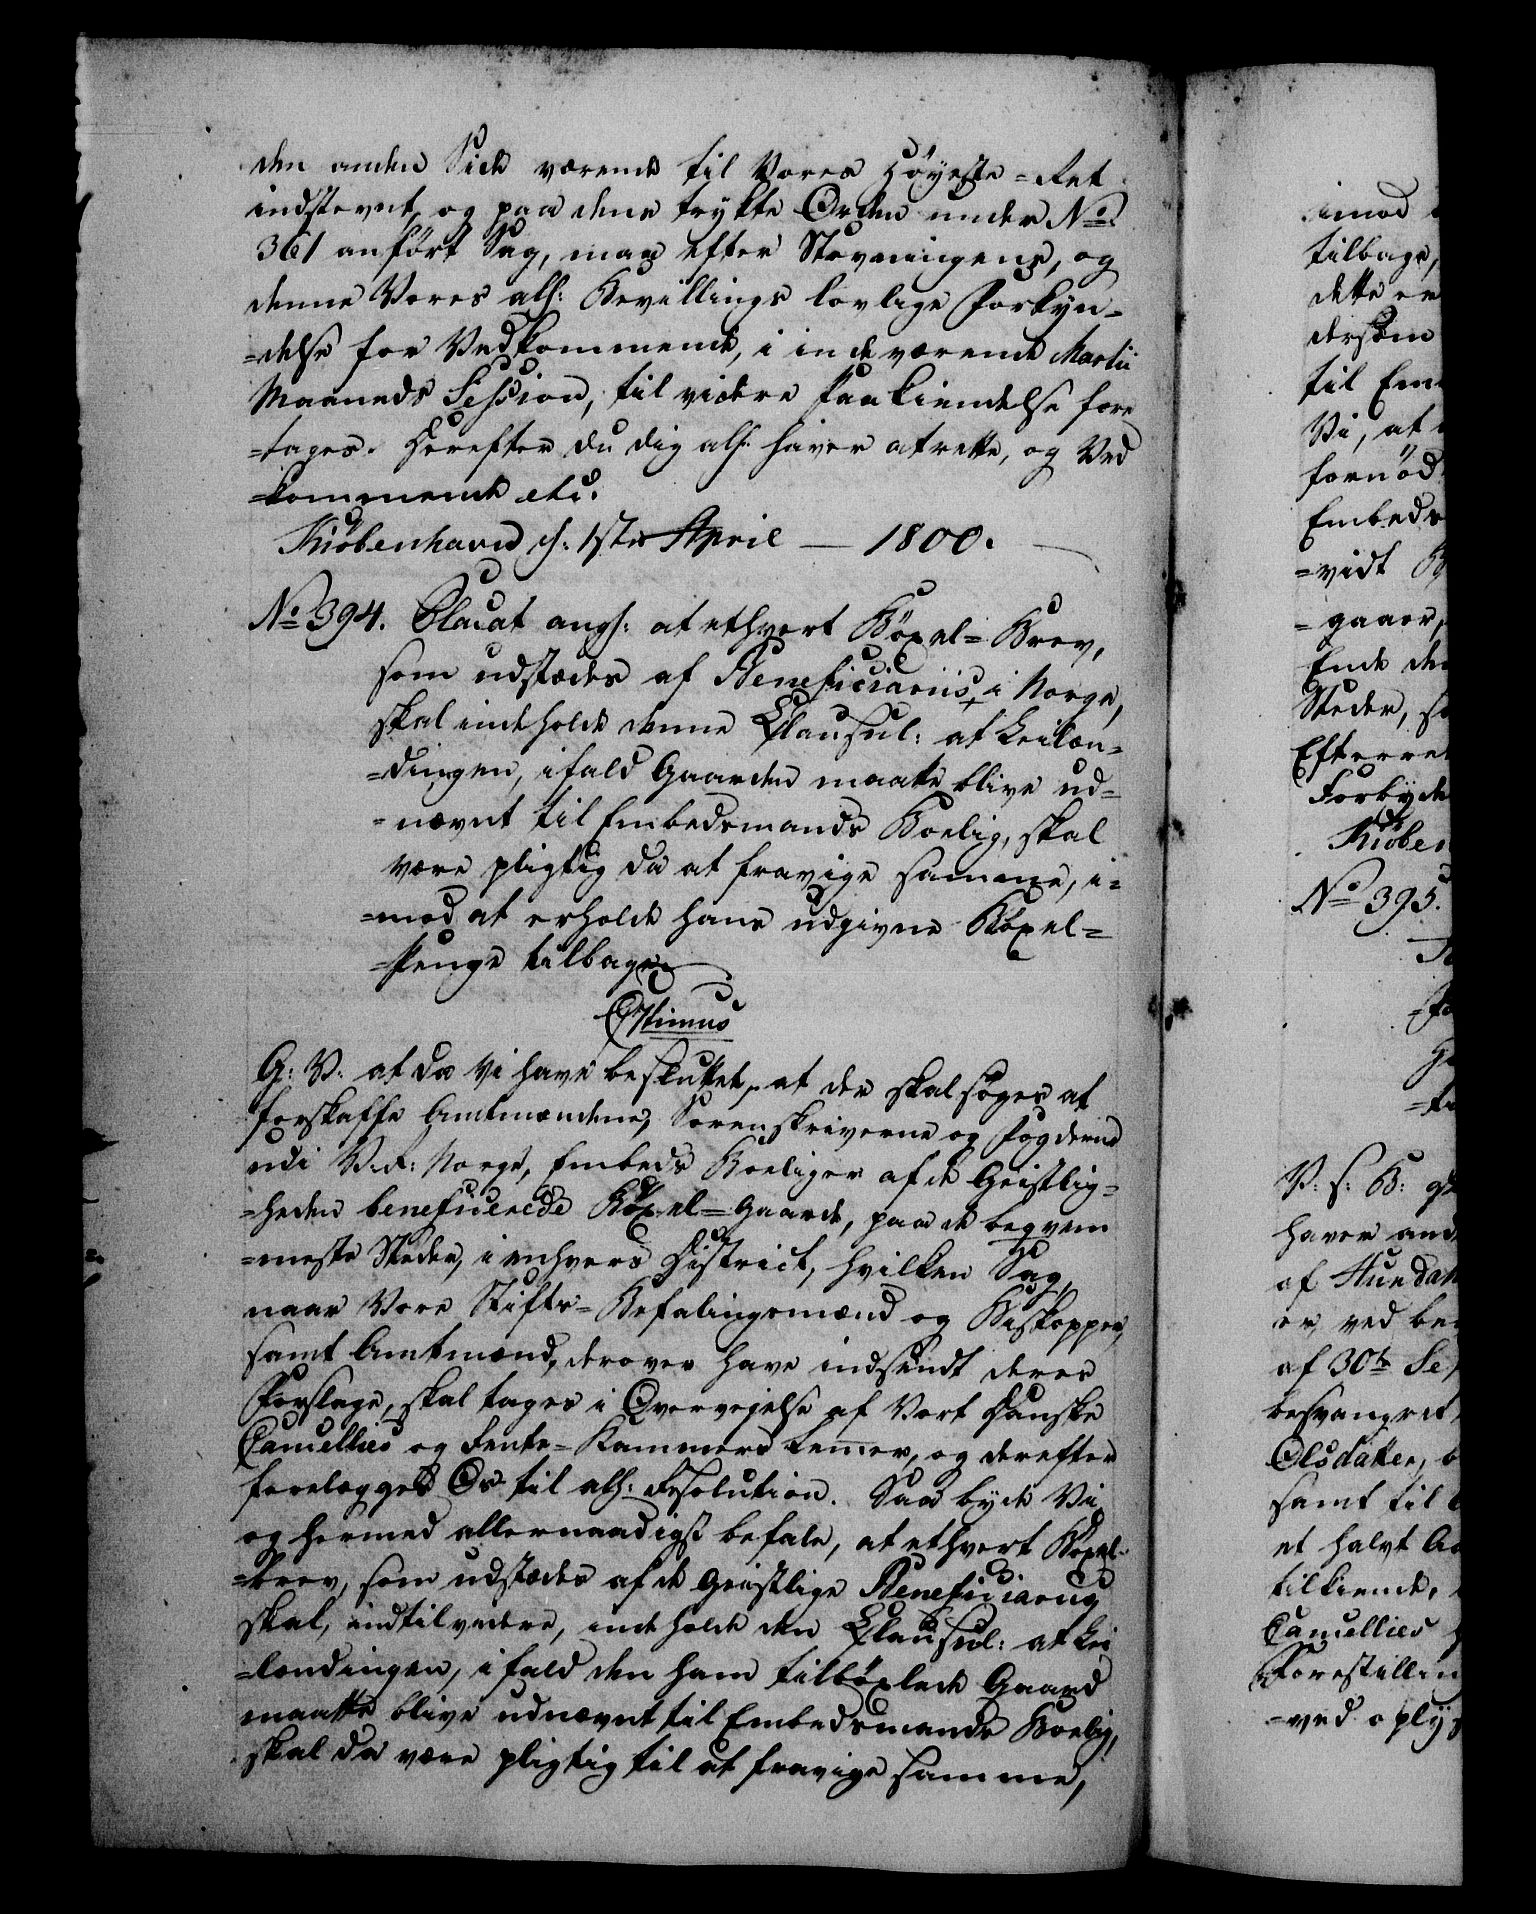 den anden Side værende til Vores Høyeste=Ret
indstevnt, og paa dens trykte Orden under No.
361 anført Sag, maa efter Stevningens, og
denne Vores alh: Bevillings lovlige Forkyn-
=delse for Vedkommende, i indeværende Martii
Maaneds Session, til videre Paakiendelse fore
=tages. Herefter du dig alh: haver at rette, og Ved
=kommende etc.
Kiøbenhavn d: 1ste April — 1800.
No. 394. Placat angh: at ethvert Böxel=Brev,
som udstædes af Beneficiariis i Norge,
skal indeholde denne Clausul: at Leilæn-
=dingen, ifald Gaarden maatte blive ud=
=nævnt til Embedsmands Boelig, skal
være pligtig da at fravige samme, i=
=mod at erholde hans udgivne Böxel=
=Penge tilbage.
C 7timus
G: V: at da Vi have besluttet, at der skal søges at
forskaffe Amtmændene, Sorenskriverne og Fogderne
udi V: R: Norge, Embeds Boeliger af de Geistlig=
=heden beneficerede Böxel=Gaarde, paa de beqvem
=meste Steder, i enhvers District, hvilken Sag,
naar Vore Stifts=Befalingsmænd og Biskopper,
samt Amtmænd, derover have indsendt deres
Forslage, skal tages i Overvejelse af Vort Danske
Cancellies og Rente=Kammers temer, og derefter
forelægges Os til alh: Resolution. Saa byde Vi
og hermed allernaadigst befale, at ethvert Böxel-
=brev, som udstædes af de Geistlige Beneficiarug
skal, indtil videre, indeholde den Clausul: at Lei
=lændingen, ifald den ham tilböxlede Gaard
maatte blive udnævnt til Embedsmands Boelig,
skal da være pligtig til at fravige samme,
imod
tilbage,
dette er
dersom
til Em
Vi, at
fornød
Embeds
=vidt
=gaaer,
Ende
Steder,
Efterret
Forbyde
Kiøben
No. 395.
V: s: B:
haver
af
er, ved
af 30te Se
besvangret
Olsdatter,
samt til
et halvt
tilkiende,
Cancellies
Forestillin
=ved oply